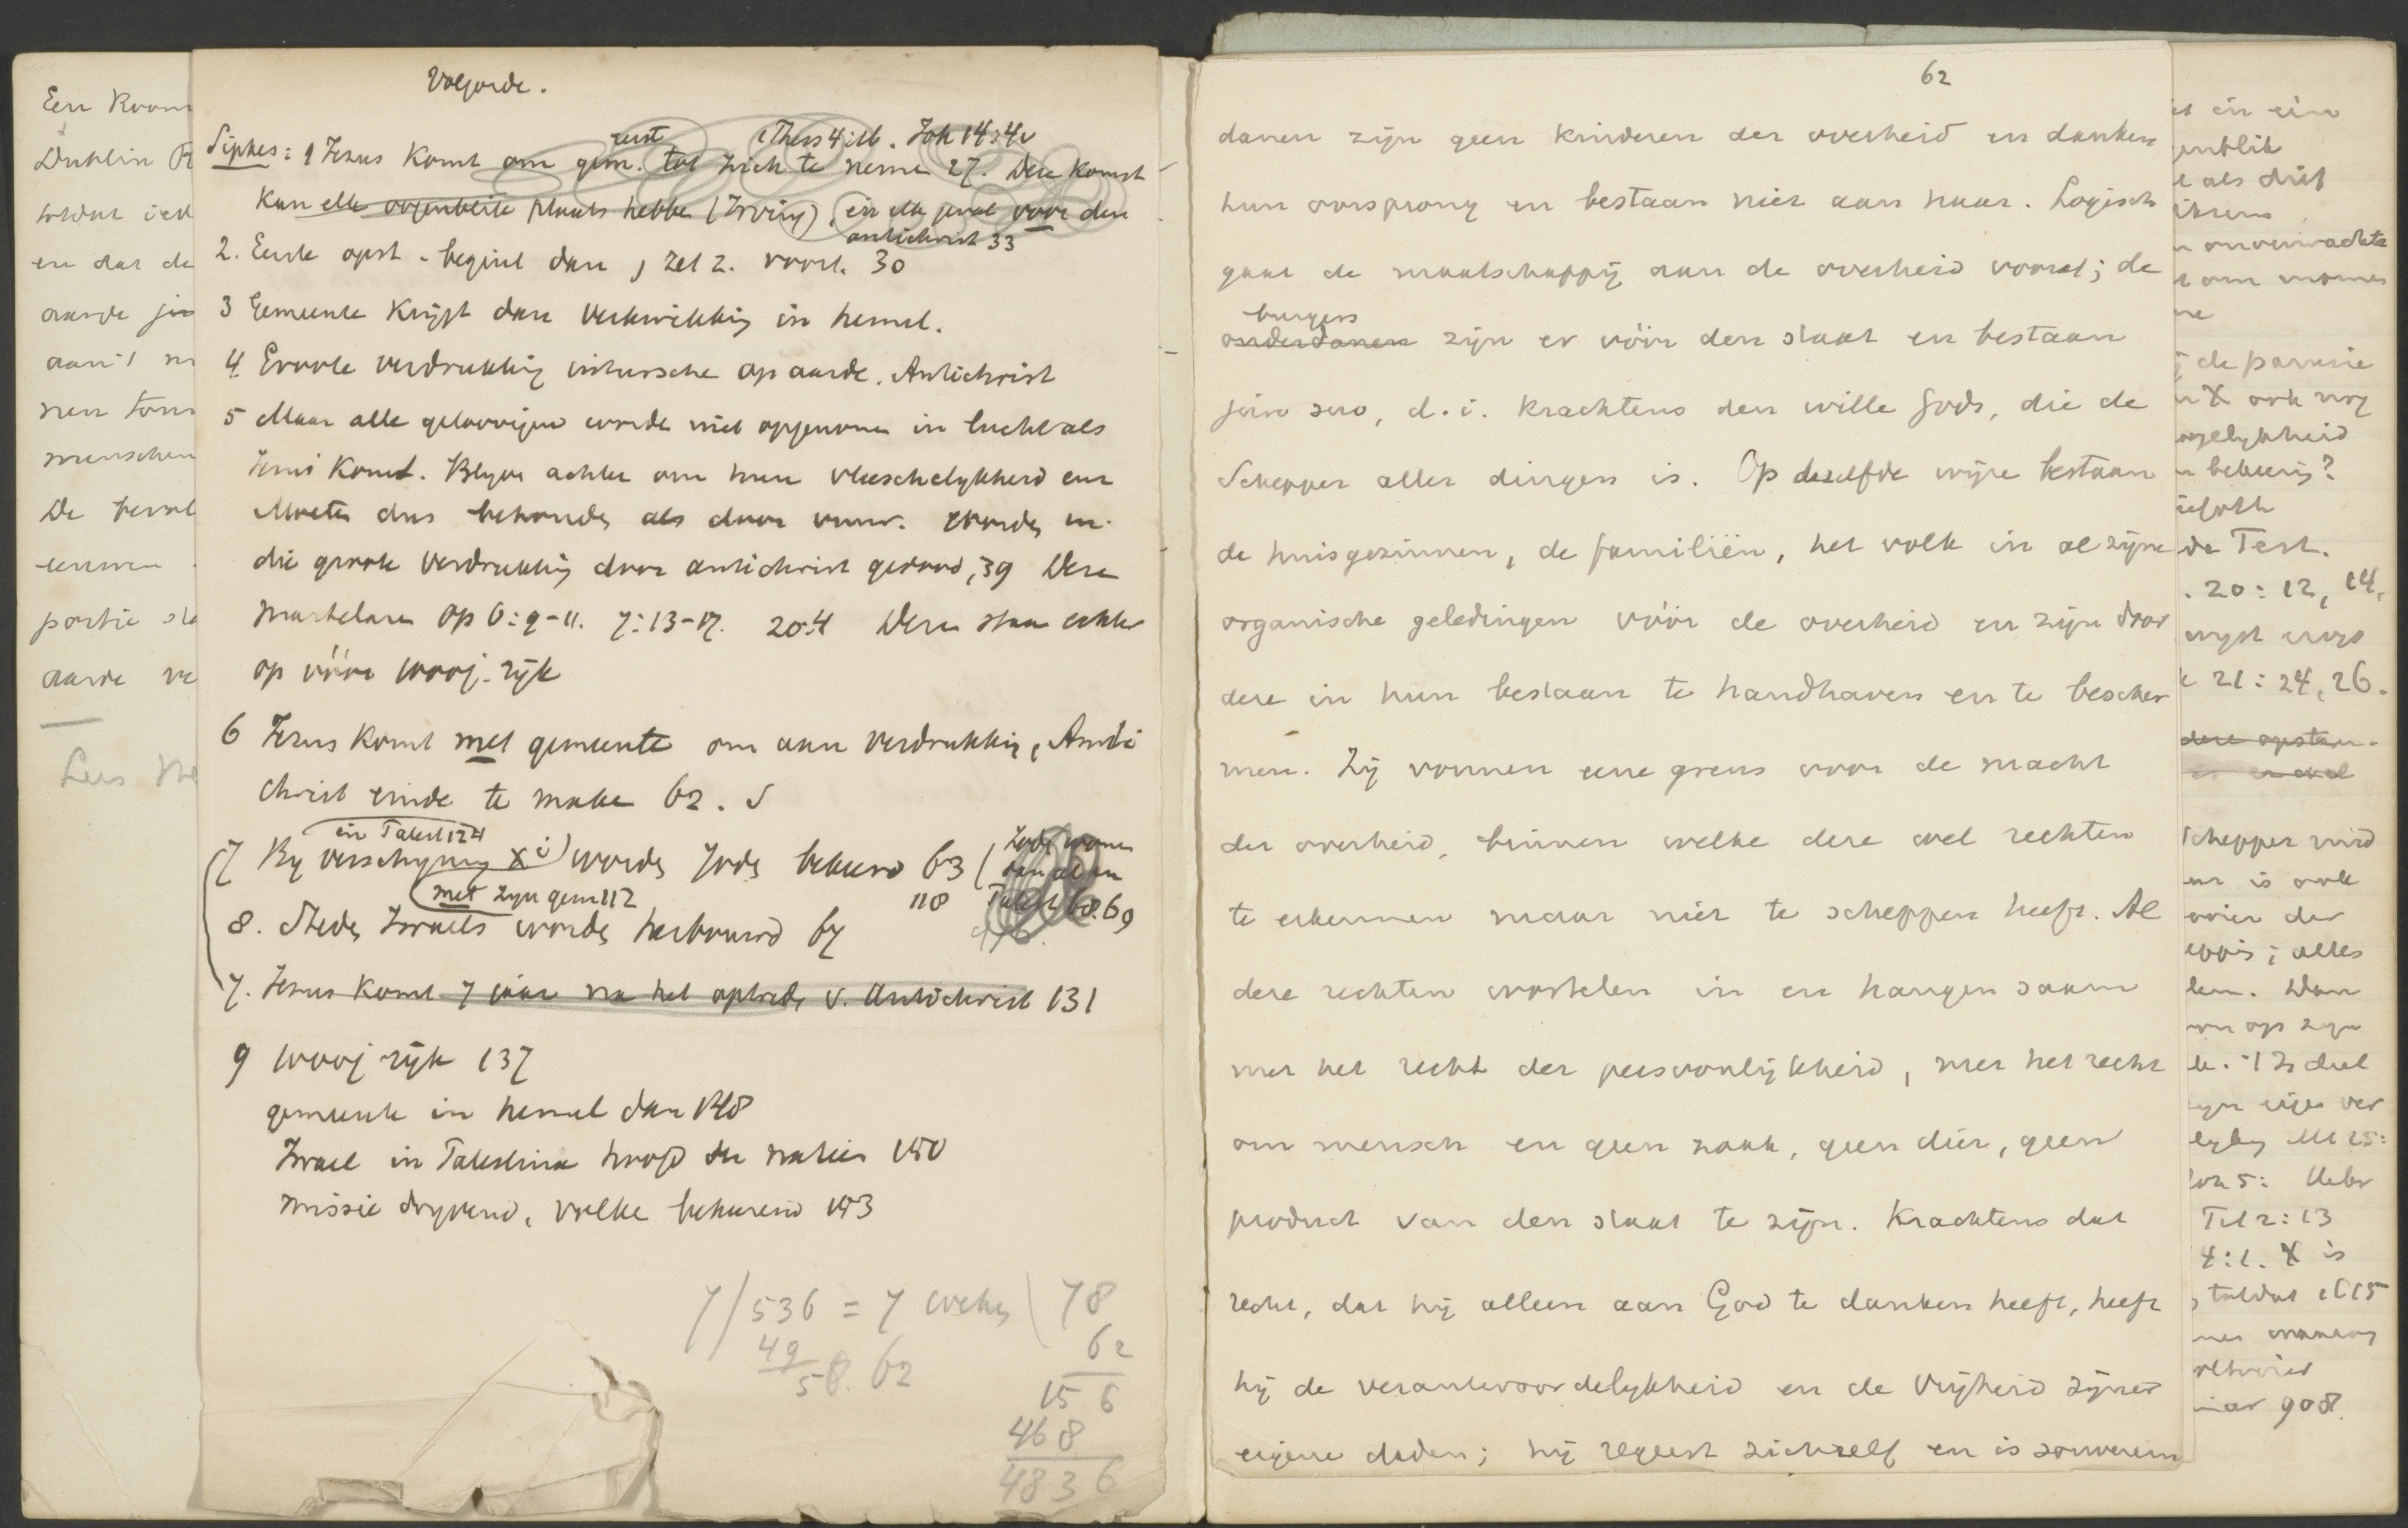 Een Room
Dublin R
en dat de
aan 't
menschen
De
portie
aarde
Lees
Volgorde.
eerst 1 Thess 4:16. Joh 14:4v
Sipkes: 1 Jezus komt om gem. tot zich te neme 27. Deze komst
kan elk oogenblik plaats hebbe (Irving), in elk geval voor den
antichrist 33
2. Eerste opst. begint dan, zet z. voort. 30
3 Gemeente krijgt dan verkwikking in hemel.
4 Groote verdrukking intussche op aarde. Antichrist
5 Maar alle geloovigen worde niet opgenome in lucht als
Jezus komt. Blyve achter om hun vleeschelykheid enz
Moete dus behoude als door vuur. Worde in
die groote verdrukking door antichrist gedood, 39 Deze
martelare Op 6:9-11. 7:13-17. 20:4 Deze staan echter
op vóór 1000j. ryk
6 Jezus komt met gemeente om aan verdrukking, Anti
christ einde te make 62.
in Palest 124
7 By verschyning X i) worde Jode bekeerd 63 (Jode wonen
dan al in
met zyn gem 112 118 Palest 68.69
8. Stede Israels worde herbouwd 67
7. Jezus komt 7 jaar na het optrede v. Antichrist 131
9 1000j ryk 137
gemeente in hemel dan 148
Israel in Palestina hoofd der natien 150
missie dryvend, volke bekeerend 153
7/536 = 7 weke \ 78
49 62
56. 62 156
468
4836
62
danen zijn geen kinderen der overheid en danken
hun oorsprong en bestaan niet aan haar. Logisch
gaat de maatschappij aan de overheid vooraf; de
burgers
onderdanen zijn er vóór den staat en bestaan
jure suo, d.i. krachtens den wille Gods, die de
Schepper aller dingen is. Op dezelfde wijze bestaan
de huisgezinnen, de familiën, het volk in al zijne
organische geledingen vóór de overheid en zijn door
deze in hun bestaan te handhaven en te bescher
men. Zij vormen eene grens voor de macht
der overheid, binnen welke deze wel rechten
te erkennen maar niet te scheppen heeft. Al
deze rechten wortelen in en hangen saam
met het recht der persoonlijkheid, met het recht
om mensch en geen zaak, geen dier, geen
product van den staat te zijn. Krachtens dat
recht, dat hij alleen aan God te danken heeft, heeft
hij de verantwoordelykheid en de vrijheid zijner
eigene daden; hij regeert zichzelf en is souverein
onverwachte
de parusie
X ook nog
bekeering?
de Test.
. 20: 12, 14,
21: 24, 26.
deze opstan-
Schepper
is ook
alles
Dan
op zyn
deel
Mt 25:
Joh 5: Hebr
Tit 2:13
4:1. X is
908.